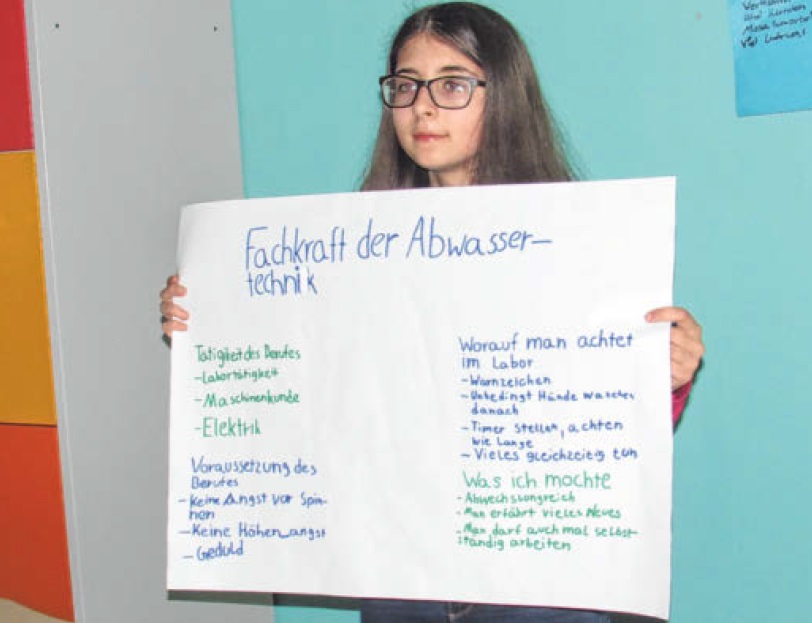 Fachkraft der Abwasser-
technik
Tätigkeit des Berufes
-Labortätigkeit
-Maschinenkunde
-Elektrik
Voraussetzung des
Berufes
-Keine Angst vor Spin-
nen
-Keine Höhen_angst
-Geduld
Worauf man achtet
im Labor
-Warnzeichen
-Unbedingt Hände waschen
danach
-Timer stellen, achten
wie Lange
-Vieles gleichzeitig tun
Was ich mochte
-Abwechssungreich
-Man erfährt vieles Neues
-Man darf auch mal selbst-
ständig arbeiten